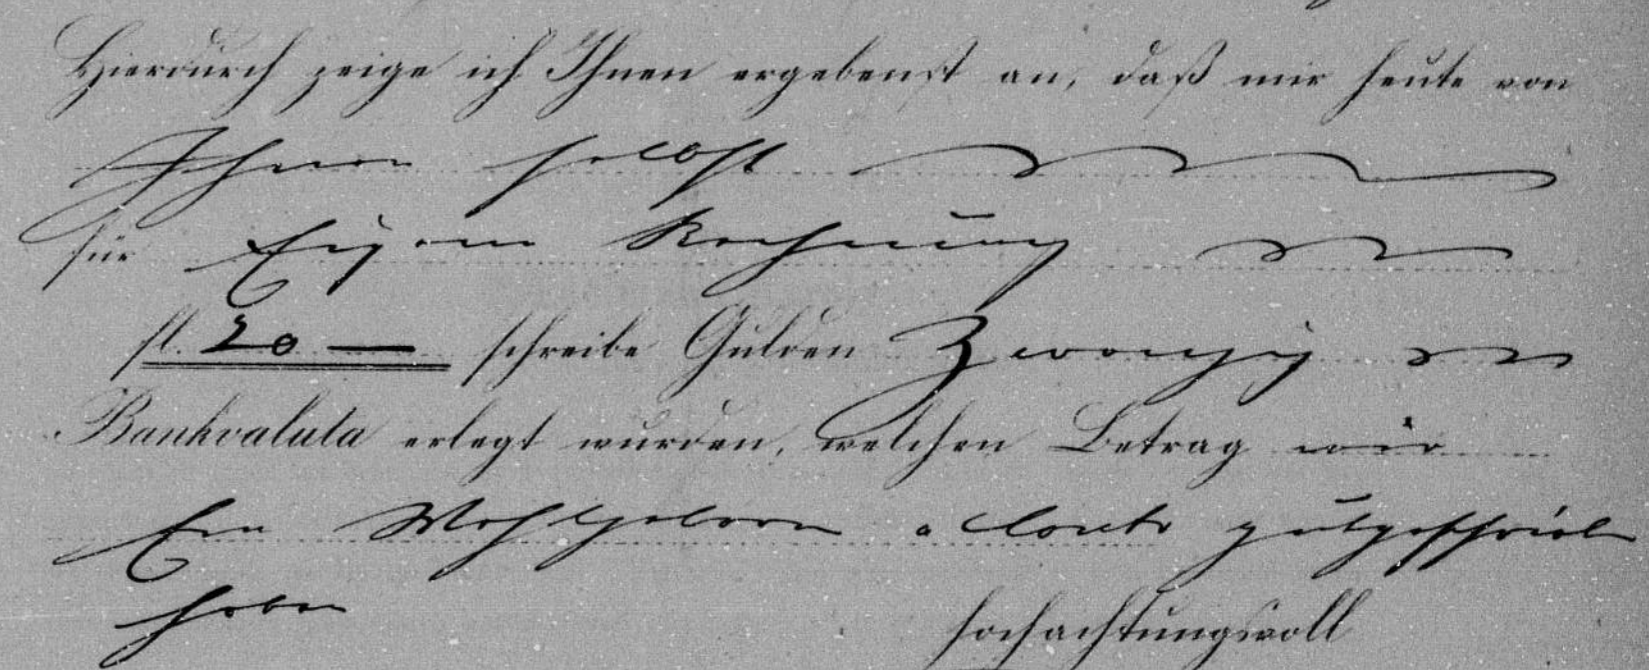 Hierdurch zeige ich Ihnen ergebenst an, daß mir heute von
Ihnen selbst
für Eigene Rechnung
fl. 20 — schreibe Gulden Zwanzig
Bankvaluta erlegt wurden, welchen Betrag wir
Eu Wohlgeboren a Conto gutgeschrieb
haben
Hochachtungsvoll